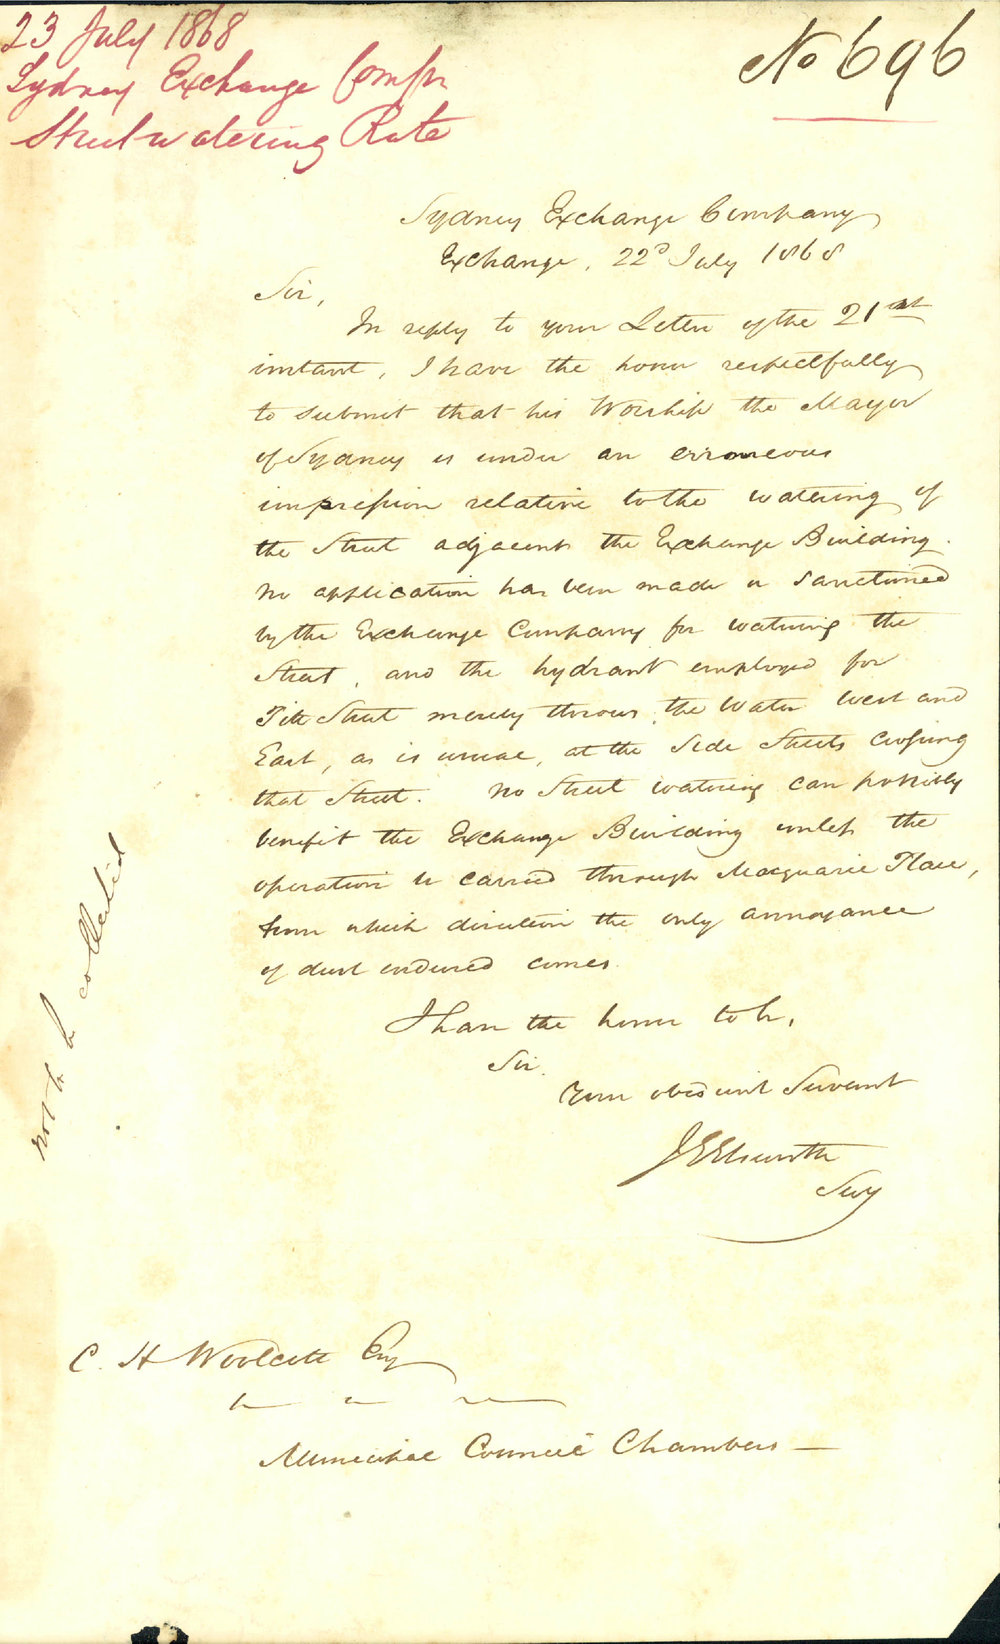 23 July 1868
Sydney Exchange Compy
Street watering Rate
No 696
Sydney Exchange Company
Exchange, 22d July 1868
Sir,
In reply to your Letter of the 21st
instant, I have the honor respectfully
to submit that his Worship the Mayor
of Sydney is under an erroneous
impression relative to the watering of
the Street adjacent the Exchange Building.
No application has been made or sanctioned
by the Exchange Company for watering the
Street, and the hydrant employed for
Pitt Street merely throws the Water West and
East, as is usual, at the Side Streets crossing
that Street. No Street watering can possibly
benefit the Exchange Building unless the
operation be carried through Macquarie Place,
from which direction the only annoyance
of dust endured comes.
I have the honor to be,
Sir.
Your obedient Servant
J E Elsworth
Secy
not to be collected
C. H Woolcott Esq
Municipal Council Chambers